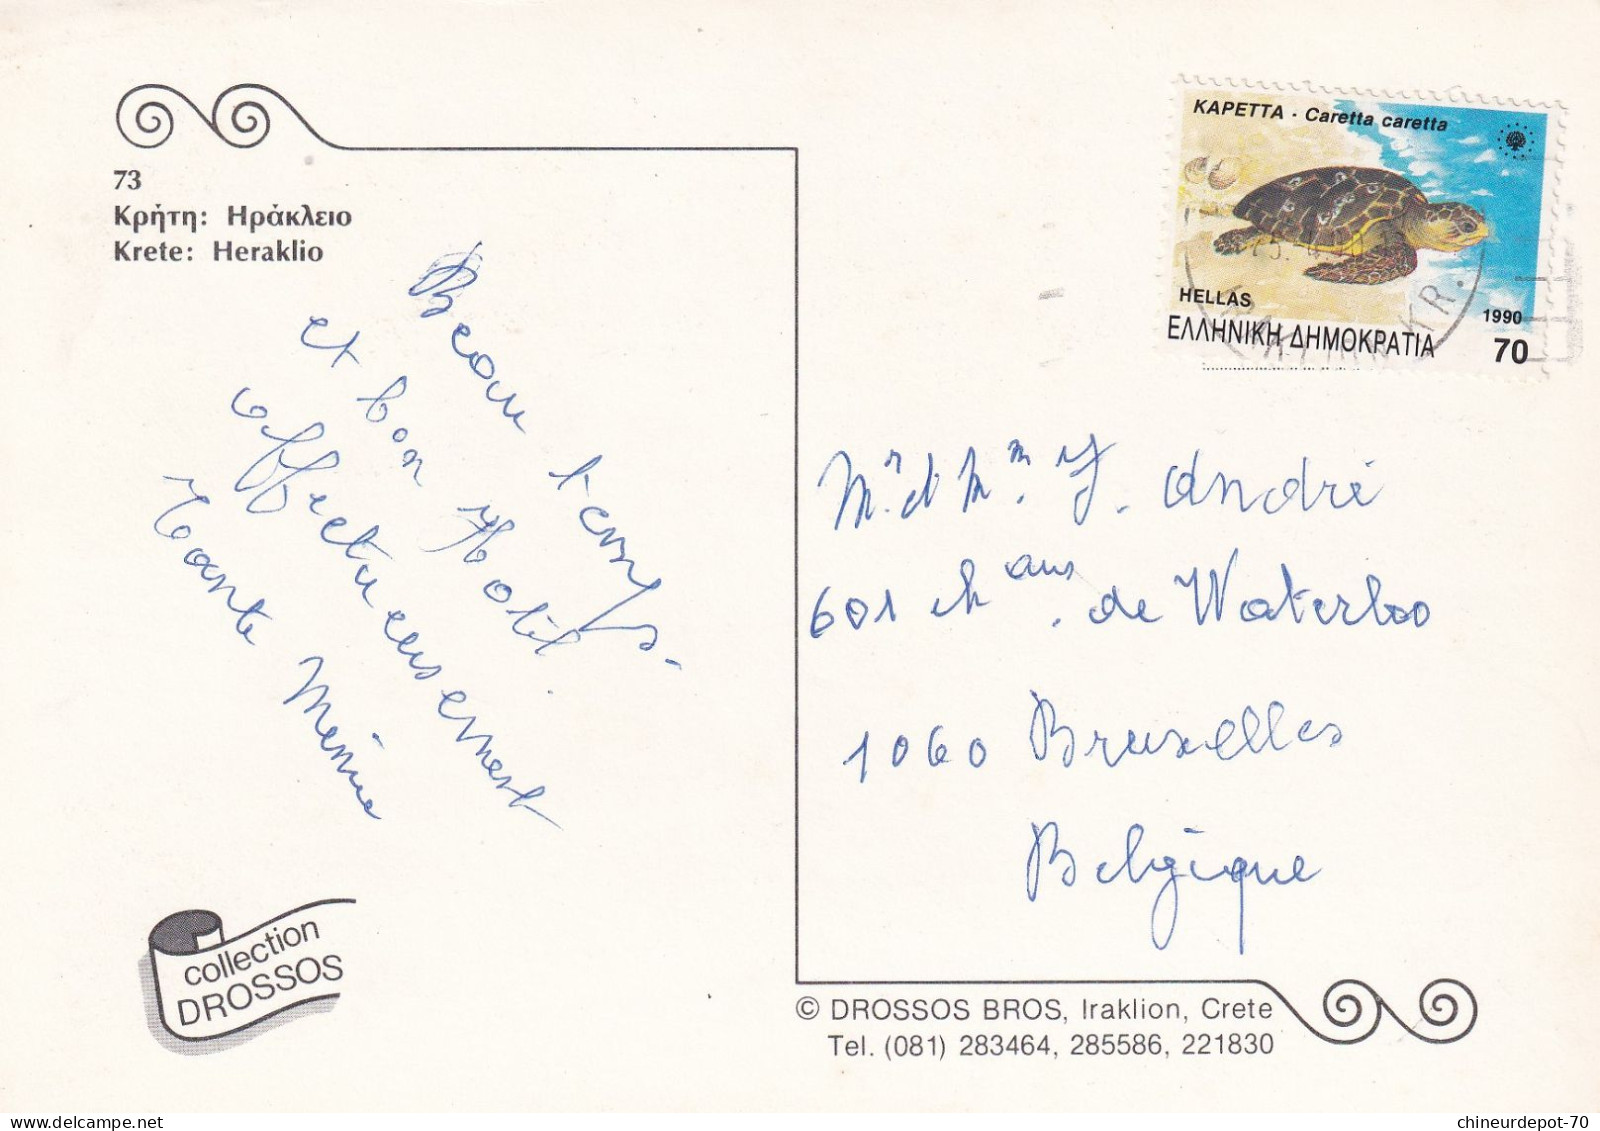 73
Κρήτη: Ηράκλειο
Krete: Heraklio
Beau temps.
et bon Hotel.
affectueusement
Tante Mimie
collection
DROSSOS
ΚΑΡΕΤΤΑ - Caretta caretta
HELLAS
1990
ΕΛΛΗΝΙΚΗ ΔΗΜΟΚΡΑΤΙΑ
70
Mr. et Mm. J. André
601 chaus. de Waterloo
1060 Bruxelles
Belgique
© DROSSOS BROS, Iraklion, Crete
Tel. (081) 283464, 285586, 221830
delcampe.net
chineurdepot-70